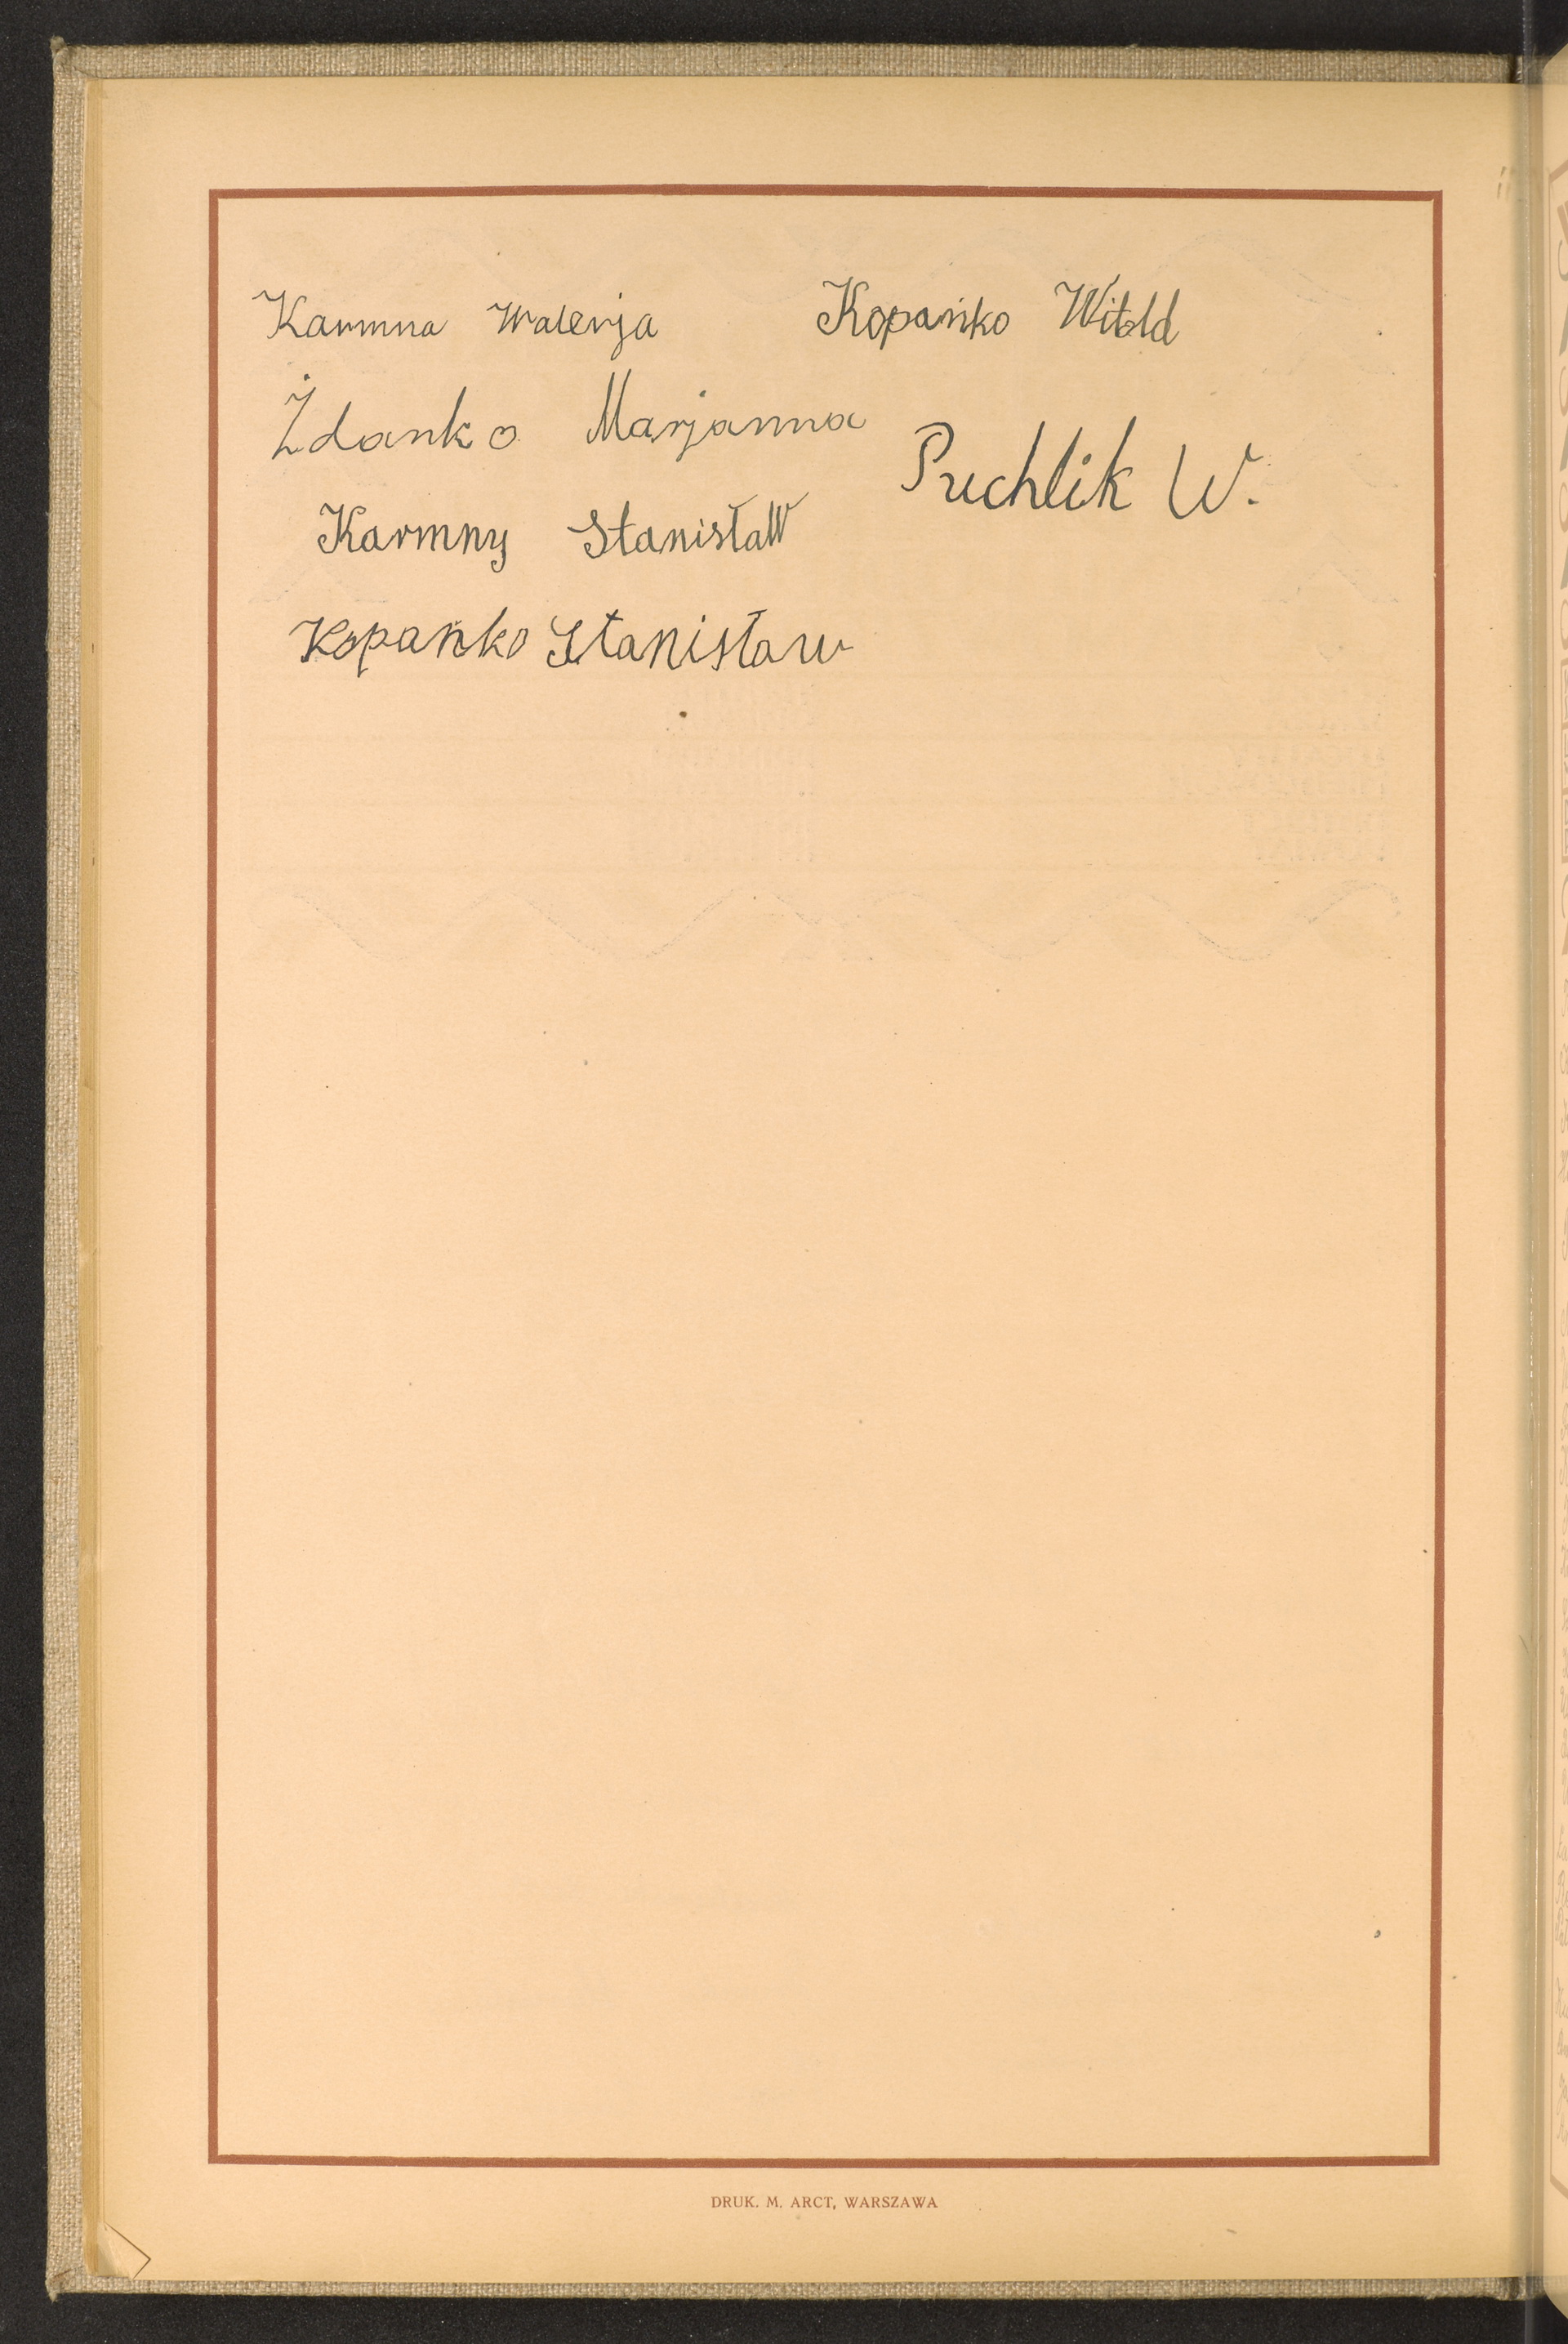 Karmna Walerja Kopańko Witold
Żdanko Marjanna
Puchlik W.
Karmny Stanisław
Kopańko Stanisław
DRUK. M. ARCT, WARSZAWA